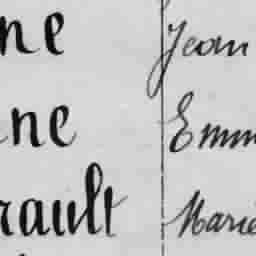 ne Jean
ne Emm
rault Marie